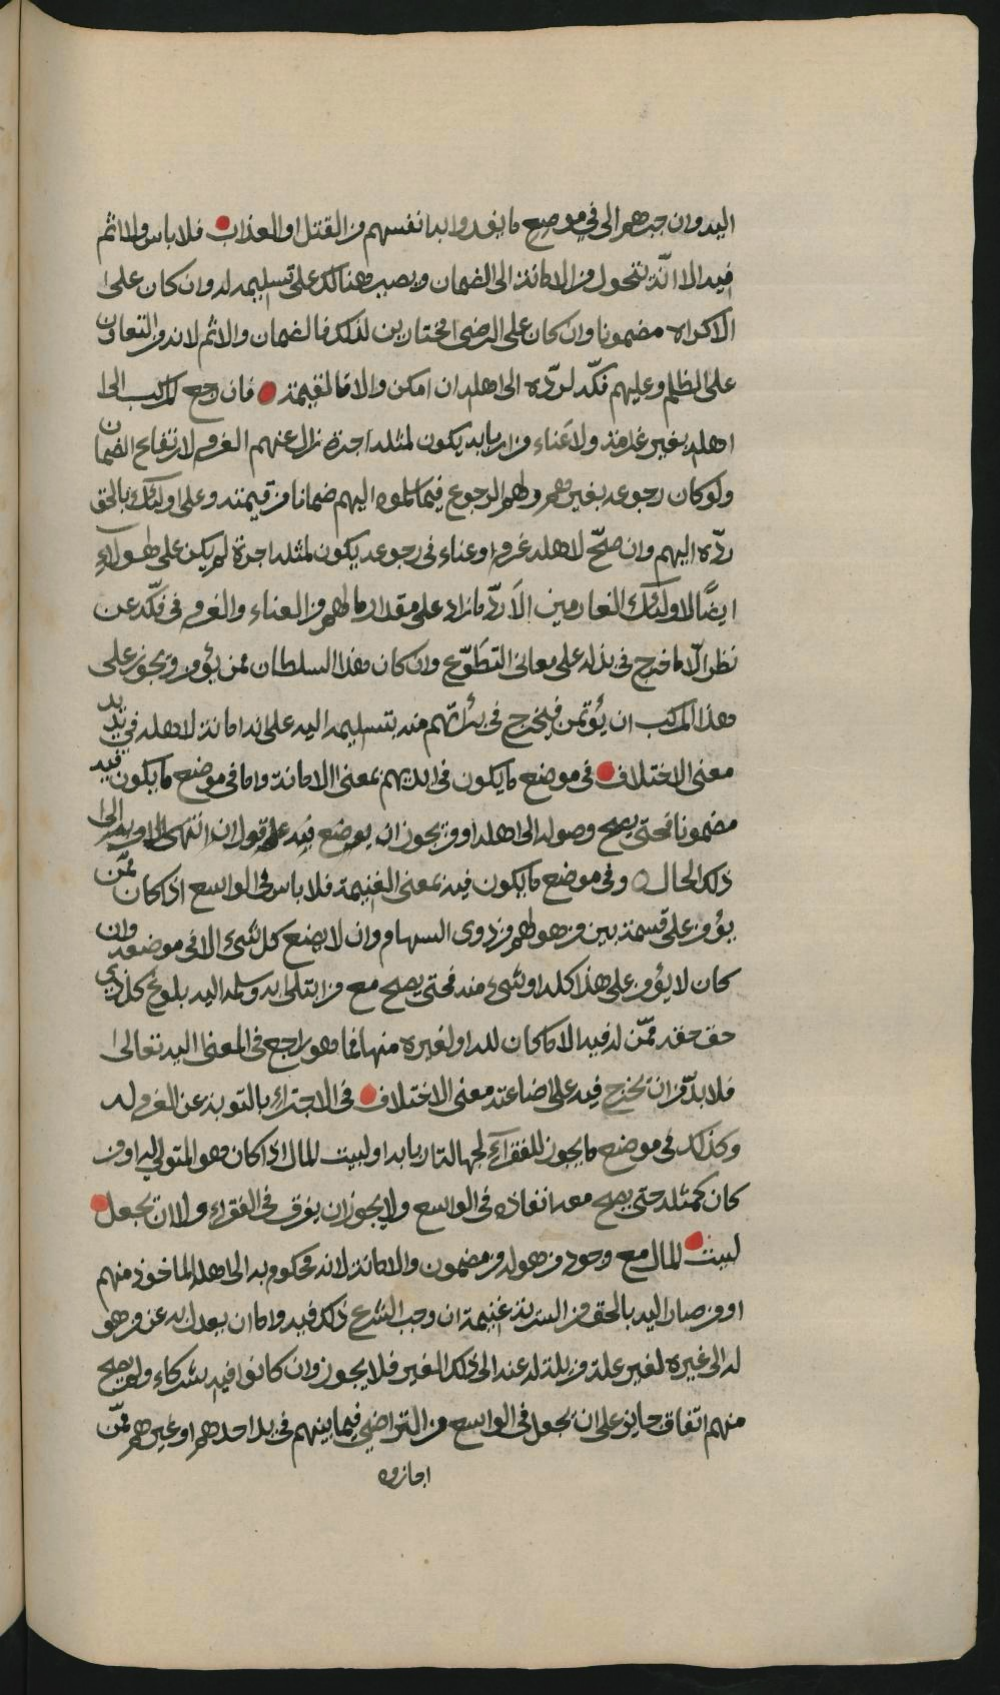 اليه وان جبرهم الى في موضع ما يفدوا به انفسهم من القتل او العذاب فلا باس ولا اثم
فيه الا انه تتحول من الامانة الى الضمان ويصير هنالك على تسليمه له وان كان على
الاكراه مضمونا وان كان على الرضى مختارين لذلك فالضمان والاثم لانه من التعاون
على الظلم وعليهم فكّه لردّه الى اهله ان امكن والا فالقيمة فان رجع المركب الى
اهله بغير غرامة ولا عَناء من اربابه يكون لمثله اجرة زال عنهم الغرم لارتفاع الضمان
ولو كان رجوعه بغيرهم ولهم الرجوع فيما سلموه اليهم ضمانا من قيمته وعلى اوليك بالحق
ردّه اليهم وان صحّ لاهله غرم او عناء في رجوعه يكون لمثله اجرة لم يكن على هولاءِ
ايضًا لاوليك الغارمين الاَ ردّ ما زاد على مقدار ما لهم من العناء والغرم في فكّه عن
نظر الّا ما خرج في بذله على معانى التطَوّع وان كان هذا السلطان ممن يؤمن ويجوز على
هذا المركب ان يؤتمن فيخرج في برآتهم منه بتسليمه اليه على انه امانة لاهله في يده
معنى الاختلاف في موضع ما يكون في ايديهم بمعنى الامانة واما في موضع ما يكون فيه
مضمونا فحتى يصح وصوله الى اهله او يجوز ان يوضع فيه على قول ان انتهى الى
ذلك الحال ه وفي موضع ما يكون فيه بمعنى الغنيمة فلا باس في الواسع اذا كان ممّن
يؤمن على قسمة بين من هو لهم من ذوى السهام وان لا يضع كل شيء الا في موضعه وان
كان لا يؤمن على هذا كله او شيء منه فحتى يصح مع من ابتلى به وسلمه اليه بلوغ كل ذي
حق حقه ممّن له فيه الا ما كان لله او لغيره منها فما هو راجع في المعنى اليه تعالى
فلا بدّ من ان يخرج فيه على اضاعته معنى الاختلاف في الاجتزاء بالتوبة عن الغرم له
وكذلك في موضع ما يجوز للفقرآءِ لجهالة اربابه او لبيت المال اذا كان هو المتولي له او من
كان كمثله حتى يصح معه انفاذه في الواسع ولا يجوز ان يفرق في الفقراء ولا ان يجعل
لبيت المال مع وجود من هو له من مضمون والامانة لانه محكوم به الى اهله الماخوذ منهم
او من صار اليه بالحق من السرية غنيمة ان وجب الشرع ذلك فيه واما ان يعدل به عن من هو
له الى غيره لغير علة مزيلة له عنه الى ذلك الغير فلا يجوز وان كانوا فيه شركاء ولم يصح
منهم اتفاق جايز على ان يجعل في الواسع من التراضي فيما بينهم في يد احدهم او غيرهم ممّن
اجازوه